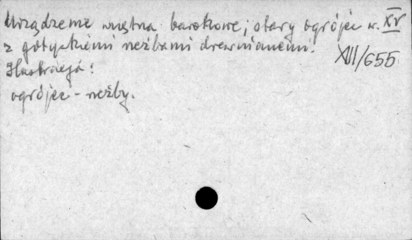 Urządzenie wnętrza barokowe; stary ogrójec w. XV
z gotyckiemi rzeźbami drewnianemi.
XVII/655
Ilustracja:
ogrójec - rzeźby.